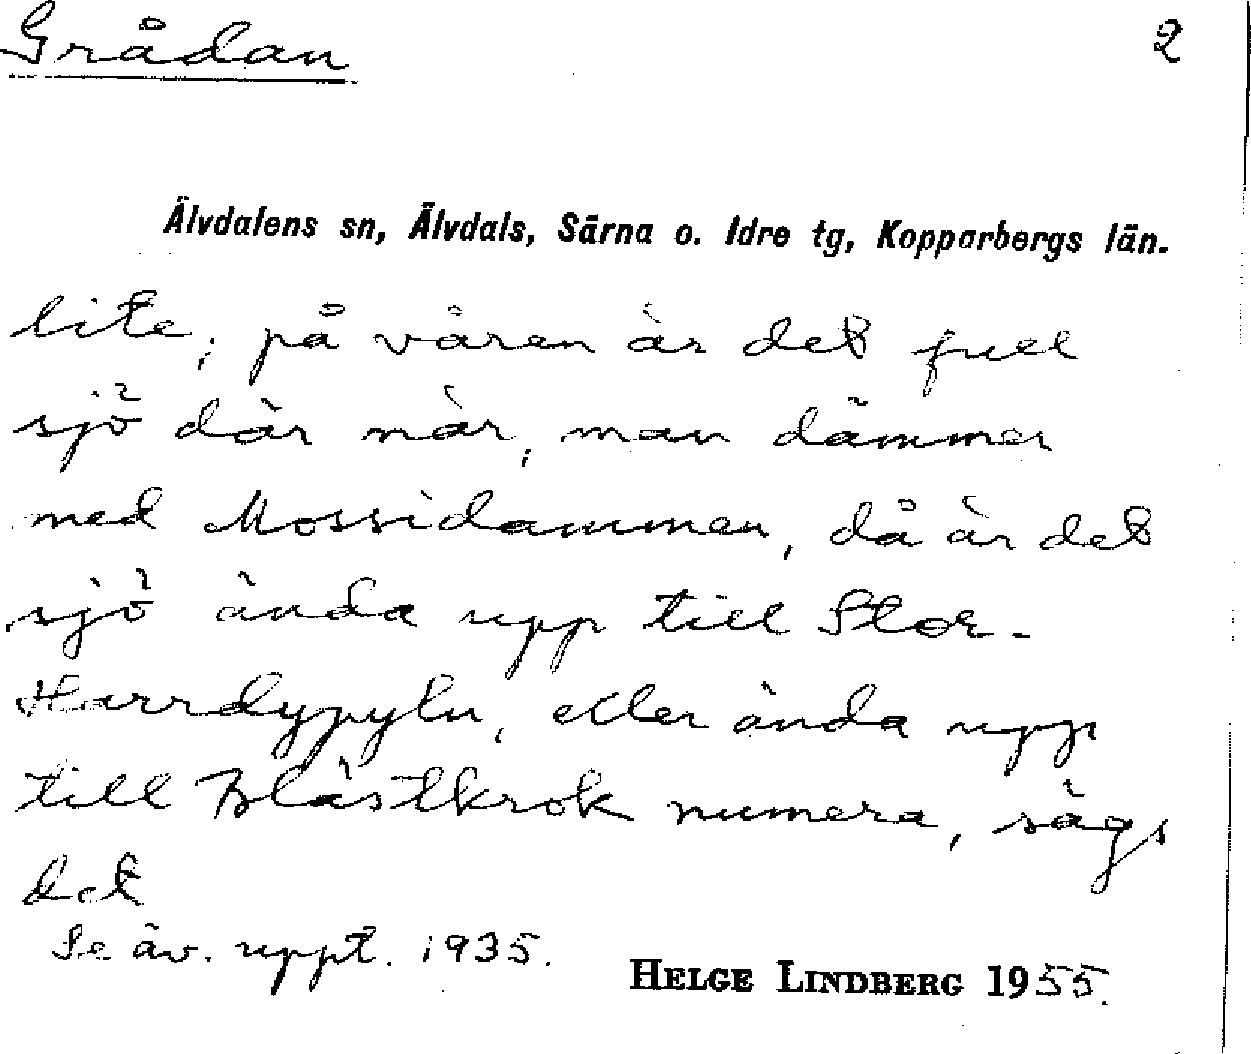 Grådan 2
Älvdalens sn, Älvdals, Särna o. Idre tg, Kopparbergs län.
lite; på våren är det full
sjö där när, man dämmer
med Mossidammen, då är det
sjö ända upp till Stor-
Harrdypyln, eller ända upp
till Blästkrok numera, sägs
det
Se äv. uppt. 1935.
HELGE LINDBERG 1955.